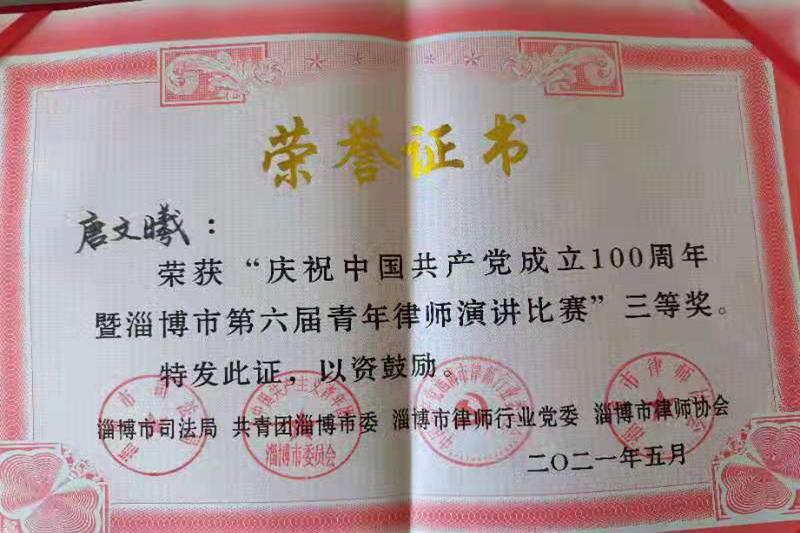 荣誉证书
唐文曦：
荣获“庆祝中国共产党成立100周年
暨淄博市第六届青年律师演讲比赛”三等奖。
特发此证，以资鼓励。
淄博市司法局 共青团淄博市委 淄博市律师行业党委 淄博市律师协会
淄博市委员会
二〇二一年五月